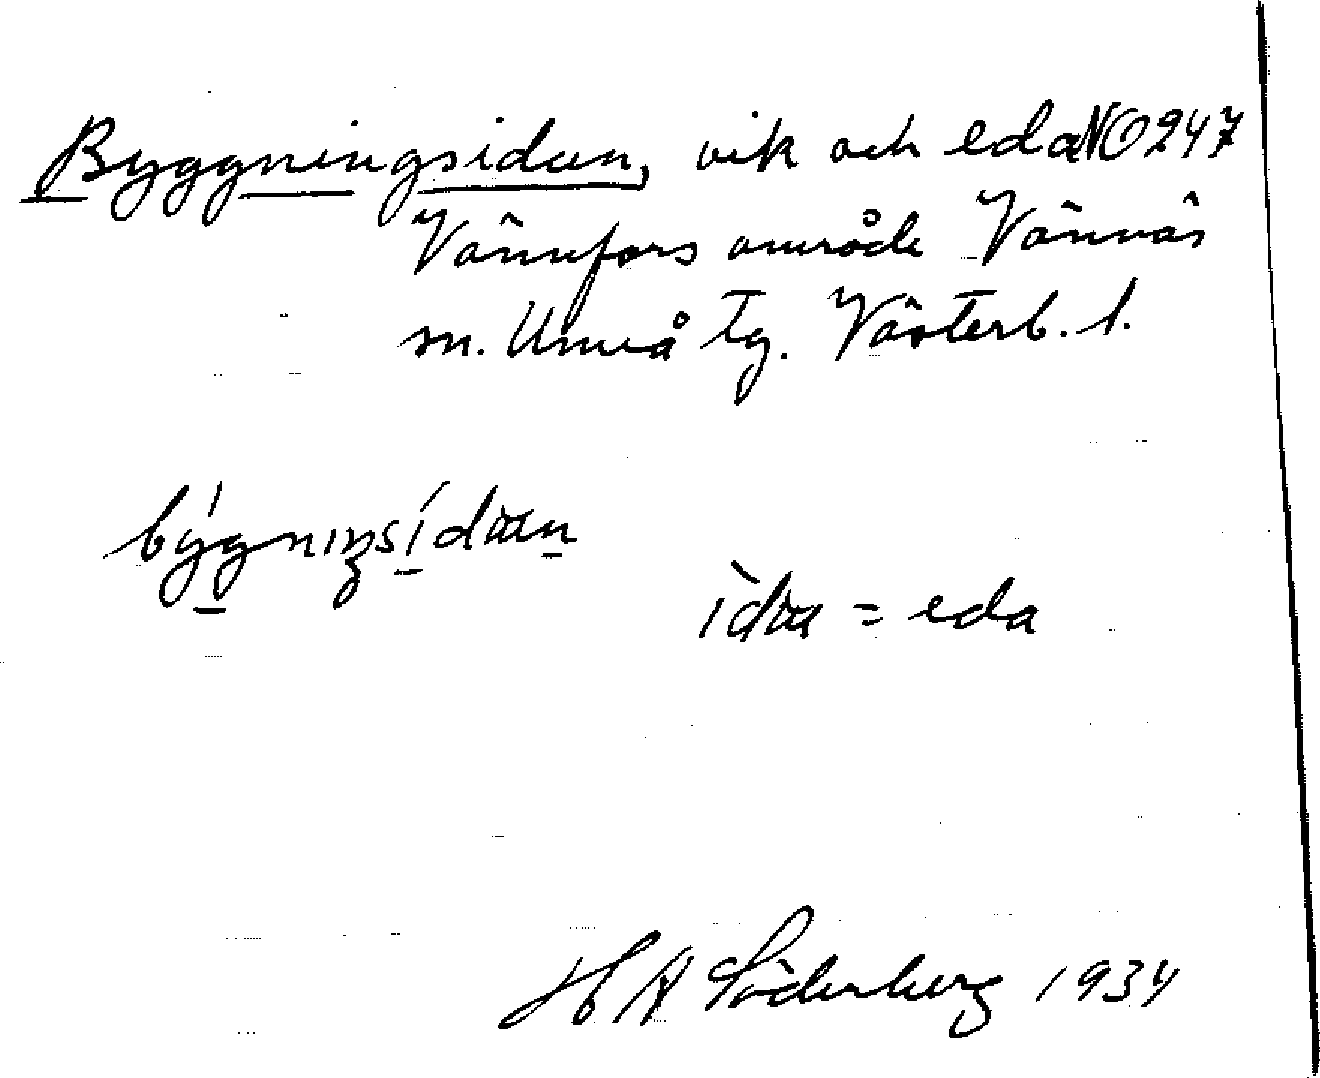 Byggningsidan, vik och eda NO247
Vännfors område Vännäs
sn. Umeå tg. Västerb. l.
ìdaa = eda
H A Söderberg 1934